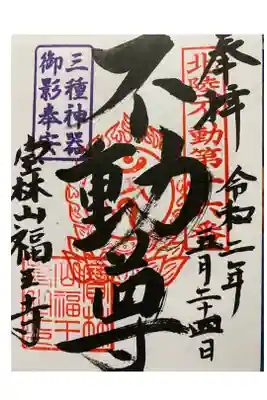 奉拝
令和二年
五月二十四日
北陸不動第
不動尊
三種神器
御影奉安
宝林山福王寺